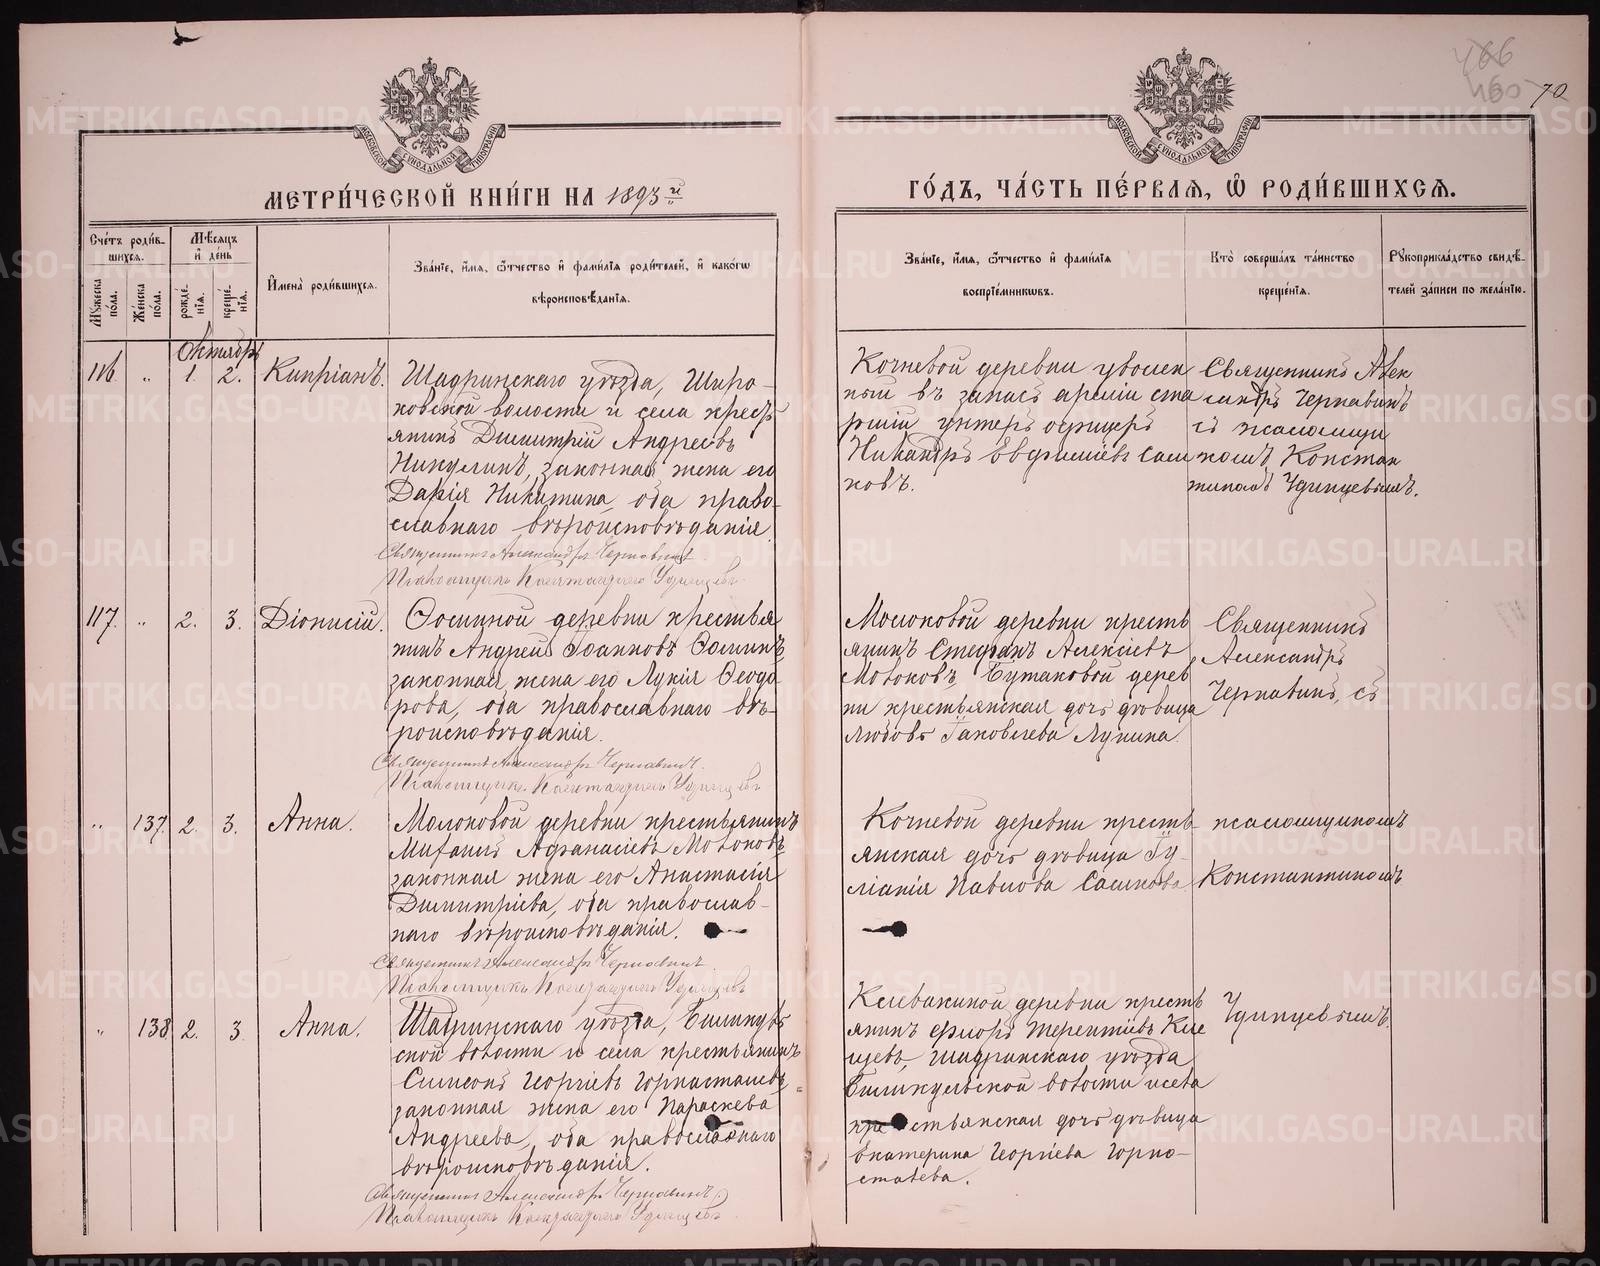 466
460
70
МОСКОВСКОЙ СѴНОДАЛЬНОЙ ТИПОГРАФІИ
МОСКОВСКОЙ СѴНОДАЛЬНОЙ ТИПОГРАФІИ
МЕТРИ́ЧЕСКОЙ КНИ́ГИ НА 1893й
ГО́ДЪ, ЧА́СТЬ ПЕ́РВАѦ, Ѡ҆ РОДИ́ВШИХСѦ.
Сче́тъ роди́в-
шихся.
Мѣ́сяцъ
и҆ де́нь
Му́жеска по́ла.
Же́нска по́ла.
рожде́-нїя.
креще́-нїя.
И҆мена̀ роди́вшихся.
Зва́нїе, и҆́мя, ѻ҆́тчество и҆ фами́лїя роди́телей, и҆ како́гѡ
вѣроисповѣ́данїя.
Зва́нїе, и҆́мя, ѻ҆́тчество и҆ фами́лїя
воспрїе́мникѡвъ.
Кто̀ соверша́лъ та́инство
креще́нїя.
Рꙋкоприкла́дство свидѣ́-
телей за́писи по жела́нїю.
Октябрь
116. " 1. 2. Кипріанъ.
Шадринскаго уѣзда, Широ-
ковской волости и села кресть-
янинъ Димитрій Андреевъ
Никулинъ, законная жена его
Дарія Никитина, оба право-
славнаго вѣроисповѣданія.
Священникъ Александръ Чернавинъ.
Псаломщикъ Константинъ Удинцевъ.
Кочневой деревни уволен
ный въ запасъ арміи ста
ршій унтеръ офицеръ
Никандръ Евфиміевъ Сасин
ковъ.
Священникъ Алек
сандръ Чернавинъ
съ псаломщи
комъ Констан
тиномъ Удинцевымъ.
117. " 2. 3. Діонисій.
Ѳоминой деревни крестья
нинъ Андрей Іоанновъ Ѳоминъ,
законная жена его Лукія Ѳеодо
рова, оба православнаго вѣ-
роисповѣданія.
Священникъ Александръ Чернавинъ.
Псаломщикъ Константинъ Удинцевъ
Молоковой деревни кресть
янинъ Стефанъ Алексіевъ
Молоковъ, Бутаковой дерев
ни крестьянская дочь дѣвица
Любовь Іаковлева Лупина.
Священникъ
Александръ
Чернавинъ, съ
" 137. 2. 3. Анна.
Молоковой деревни крестьянинъ
Михаилъ Аѳанасіевъ Молоковъ,
законная жена его Анастасія
Димитріева, оба православ-
наго вѣроисповѣданія.
Священникъ Александръ Чернавинъ
Псаломщикъ Константинъ Удинцевъ
Кочневой деревни кресть-
янская дочь дѣвица Іу-
ліанія Павлова
псаломщикомъ
Константиномъ
" 138 2. 3 Анна.
Шадринскаго уѣзда, Биликуль
ской волости и села крестьянинъ
Симеонъ Георгіевъ Горностаевъ,
законная жена его Параскева
Андреева, оба православнаго
вѣроисповѣданія.
Священникъ Александръ Чернавинъ
Псаломщикъ Константинъ Удинцевъ.
Клевакиной деревни кресть
янинъ Флоръ Терентіевъ Кле
щевъ, Шадринскаго уѣзда
Биликульской волости и села
крестьянская дочь дѣвица
Екатерина Георгіева Горно-
стаева.
Удинцевымъ.
METRIKI.GASO-URAL.RU